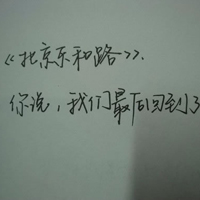 《北京东和路》.
你说，我们最后回到了